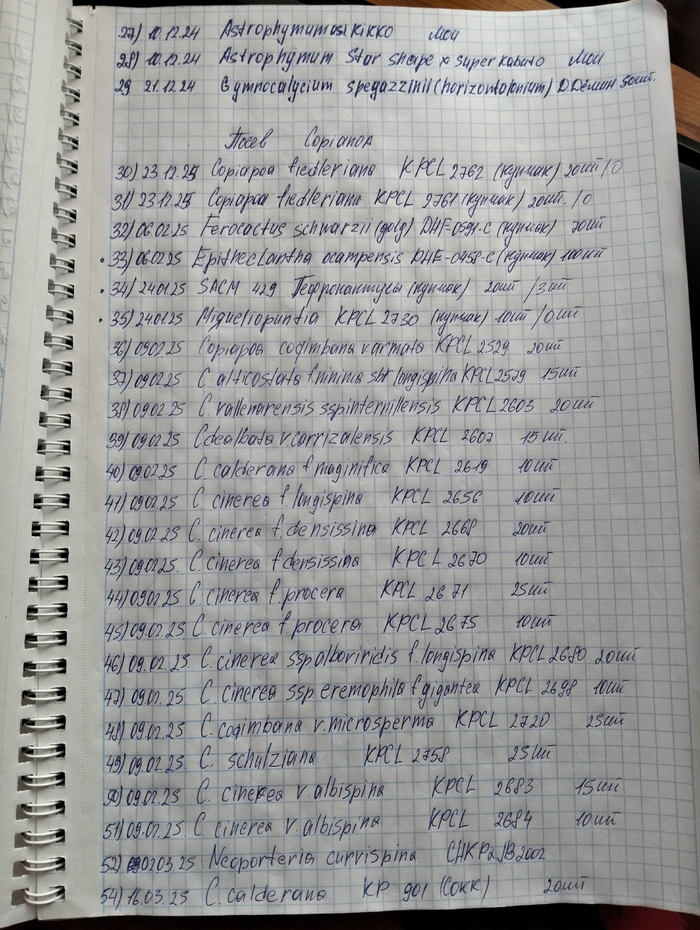 27) 10.12.24 Astrophymumasi kikko Мои
28) 10.12.24 Astrophymum Star shape x super kabuto Мои
29 21.12.24 Gymnocalycium spegazzinii (horizontolonium) Д.Дёмин 50шт.
Посев Copiapoa
30) 23.12.25 Copiapoa fiedleriana KPCL 2762 (купчак) 20шт/0
31) 23.12.25 Copiapoa fiedleriana KPCL 2761 (купчак) 20шт./0
32) 06.02.25 Ferocactus schwarzii (golg) DHF-0591-C (купчак) 70шт
33) 06.02.25 Epithelantha ocampensis DHF-0458-C (купчак) 100шт
34) 24.01.25 SACM 429 Тефрокактусы (купчак) 20шт /3шт
35) 24.01.25 Migueliopuntia KPCL 2730 (купчак) 10шт /0шт
36) 09.02.25 Copiapoa coqimbana v armata KPCL 2529 20шт
37) 09.02.25 C alticostata f minima sbf longispina KPCL 2579 15шт
38) 09.02.25 C vallenarensis ssp internillensis KPCL 2603 20шт
39) 09.02.25 C dealbata v carrizalensis KPCL 2607 15шт.
40) 09.02.25 C. calderana f maginifica KPCL 2619 10шт
41) 09.02.25 C. cinerea f. longispina KPCL 2656 10шт
42) 09.02.25 C. cinerea f. densissina KPCL 2668 20шт
43) 09.02.25. C. cinerea f densissina KPCL 2670 10шт
44) 09.02.25 C. cinerea f. procera KPCL 2671 25шт
45) 09.02.25 C. cinerea f. procera KPCL 2675 10шт
46) 09.02.25 C. cinerea ssp alboviridis f. longispina KPCL 2680 20шт
47) 09.02.25 C. cinerea ssp eremophila f gigantea KPCL 2698 10шт
48) 09.02.25 C. coqimbana v. microsperma KPCL 2720 25шт
49) 09.02.25 C. schulziana KPCL 2758 25шт
50) 09.02.25 C. cinerea v albispina KPCL 2683 15шт
51) 09.02.25 C cinerea v. albispina KPCL 2684 10шт
52) 02.03.25 Neoporteria curvispina
54) 16.03.25 C. calderana KP 901 (Сокк) 20шт